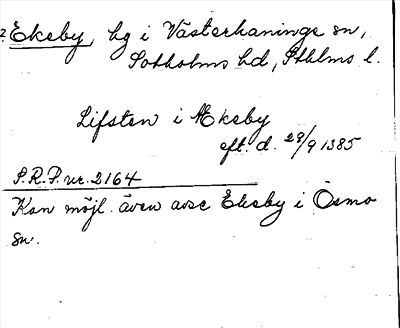 ? Ekeby, by i Västerhaninge sn,
Sotholms hd, Sthlms l.
Lifsten i Ækeby
eft. d. 29/9 1385
S.R.P. nr. 2164
Kan möjl. även avse Ekeby i Ösmo
sn.